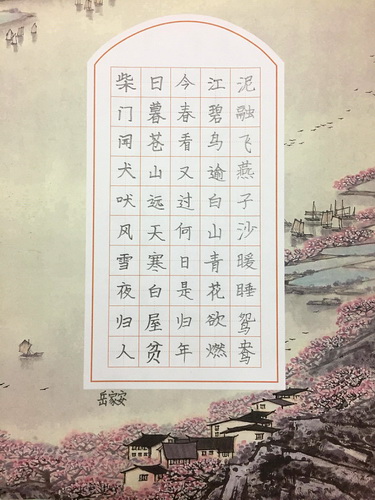 泥融飞燕子沙暖睡鸳鸯
江碧鸟逾白山青花欲燃
今春看又过何日是归年
日暮苍山远天寒白屋贫
柴门闻犬吠风雪夜归人
岳家安